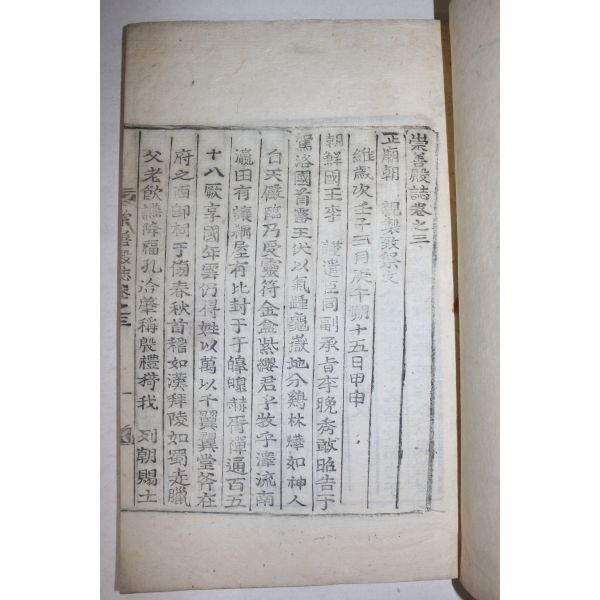 崇善殿誌卷之三
正廟朝 親製致祭文
維歲次壬子三月庚午朔十五日甲申
朝鮮國王李 謹遣臣同副承旨李晚秀敢昭告于
駕洛國首露王伏以氣鍾龜嶽地分鷄林燁如神人
白天儼臨乃受靈符金盒紫纓君乎牧乎澤流南
瀛田有讓耦屋有比封于于皥皥赫胥禪通百五
十八厥享國年雲仍得姓以萬以千翼翼堂斧在
府之西卽祠于傍春秋首稽如漢拜陵如蜀走臘
父老飮讌降福孔洽肇稱殷禮猗我 列朝賜土
崇善殿誌卷之三 一